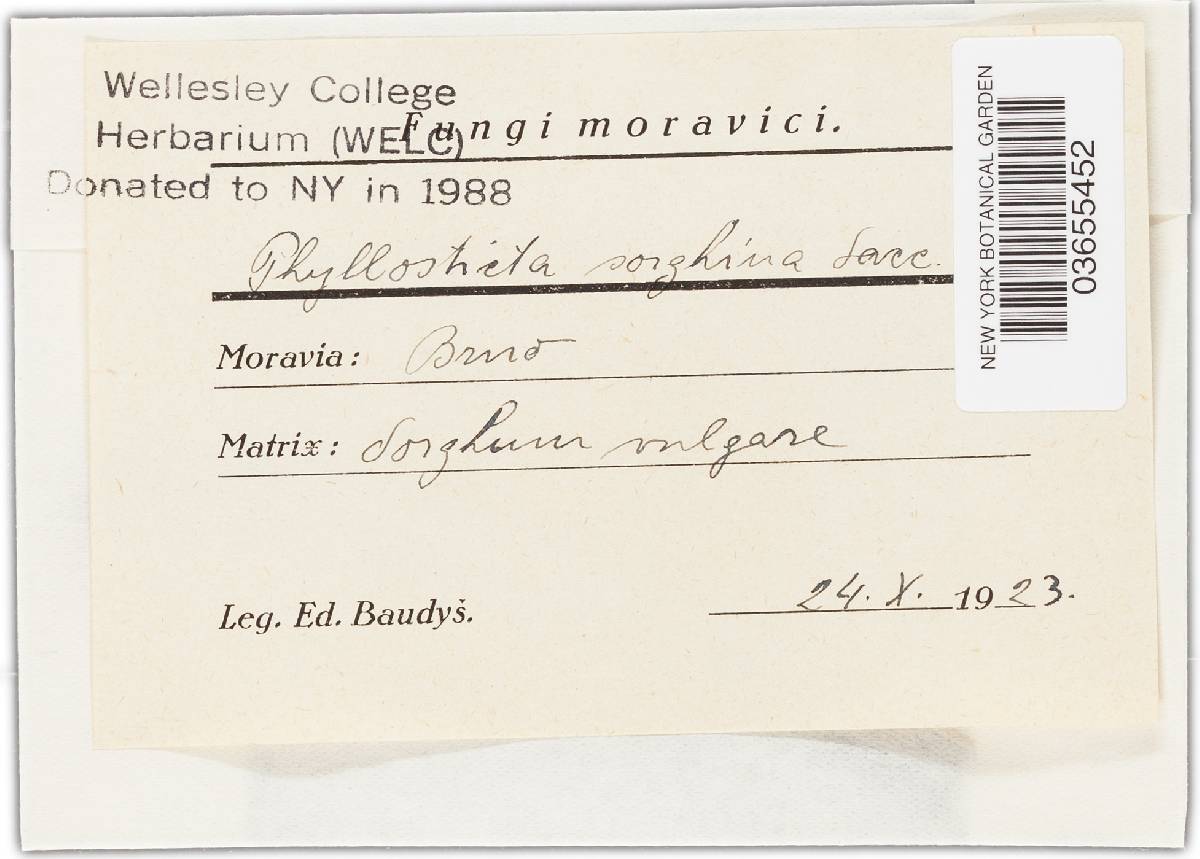 Wellesley College
Herbarium (WELC)
Donated to NY in 1988
Fungi moravici.
Phyllosticta sorghina Sacc.
Moravia: Brno
Matrix: Sorghum vulgare
Leg. Ed. Baudyš.
24. X. 1923.
NEW YORK BOTANICAL GARDEN
03655452